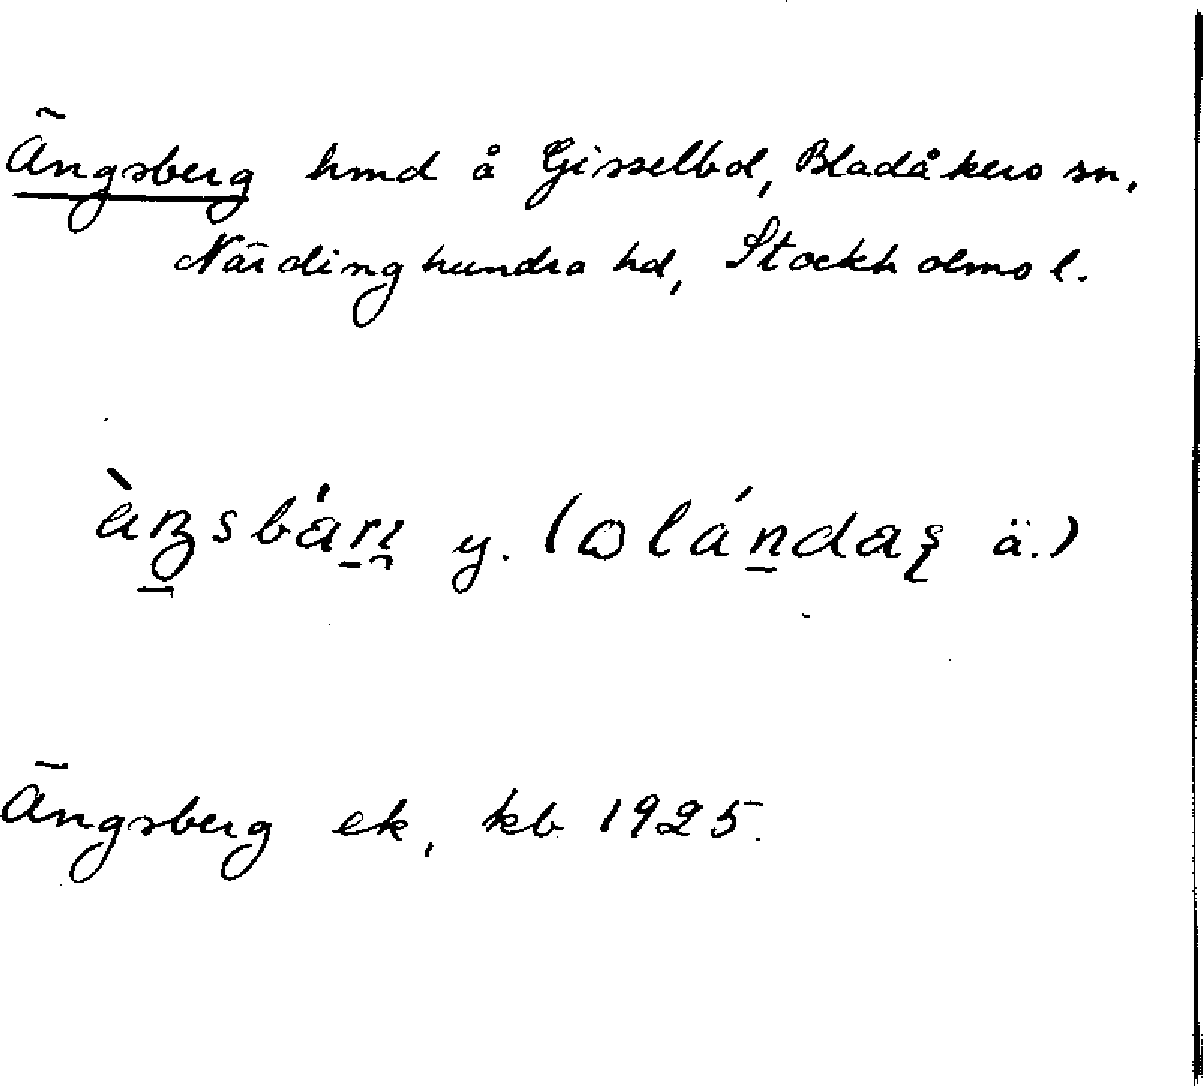 Ängsberg hmd å Gisselbol, Bladåkers sn.
Närdinghundra hd, Stockholms l.
y. ( ä.)
Ängsberg ek, kb 1925.